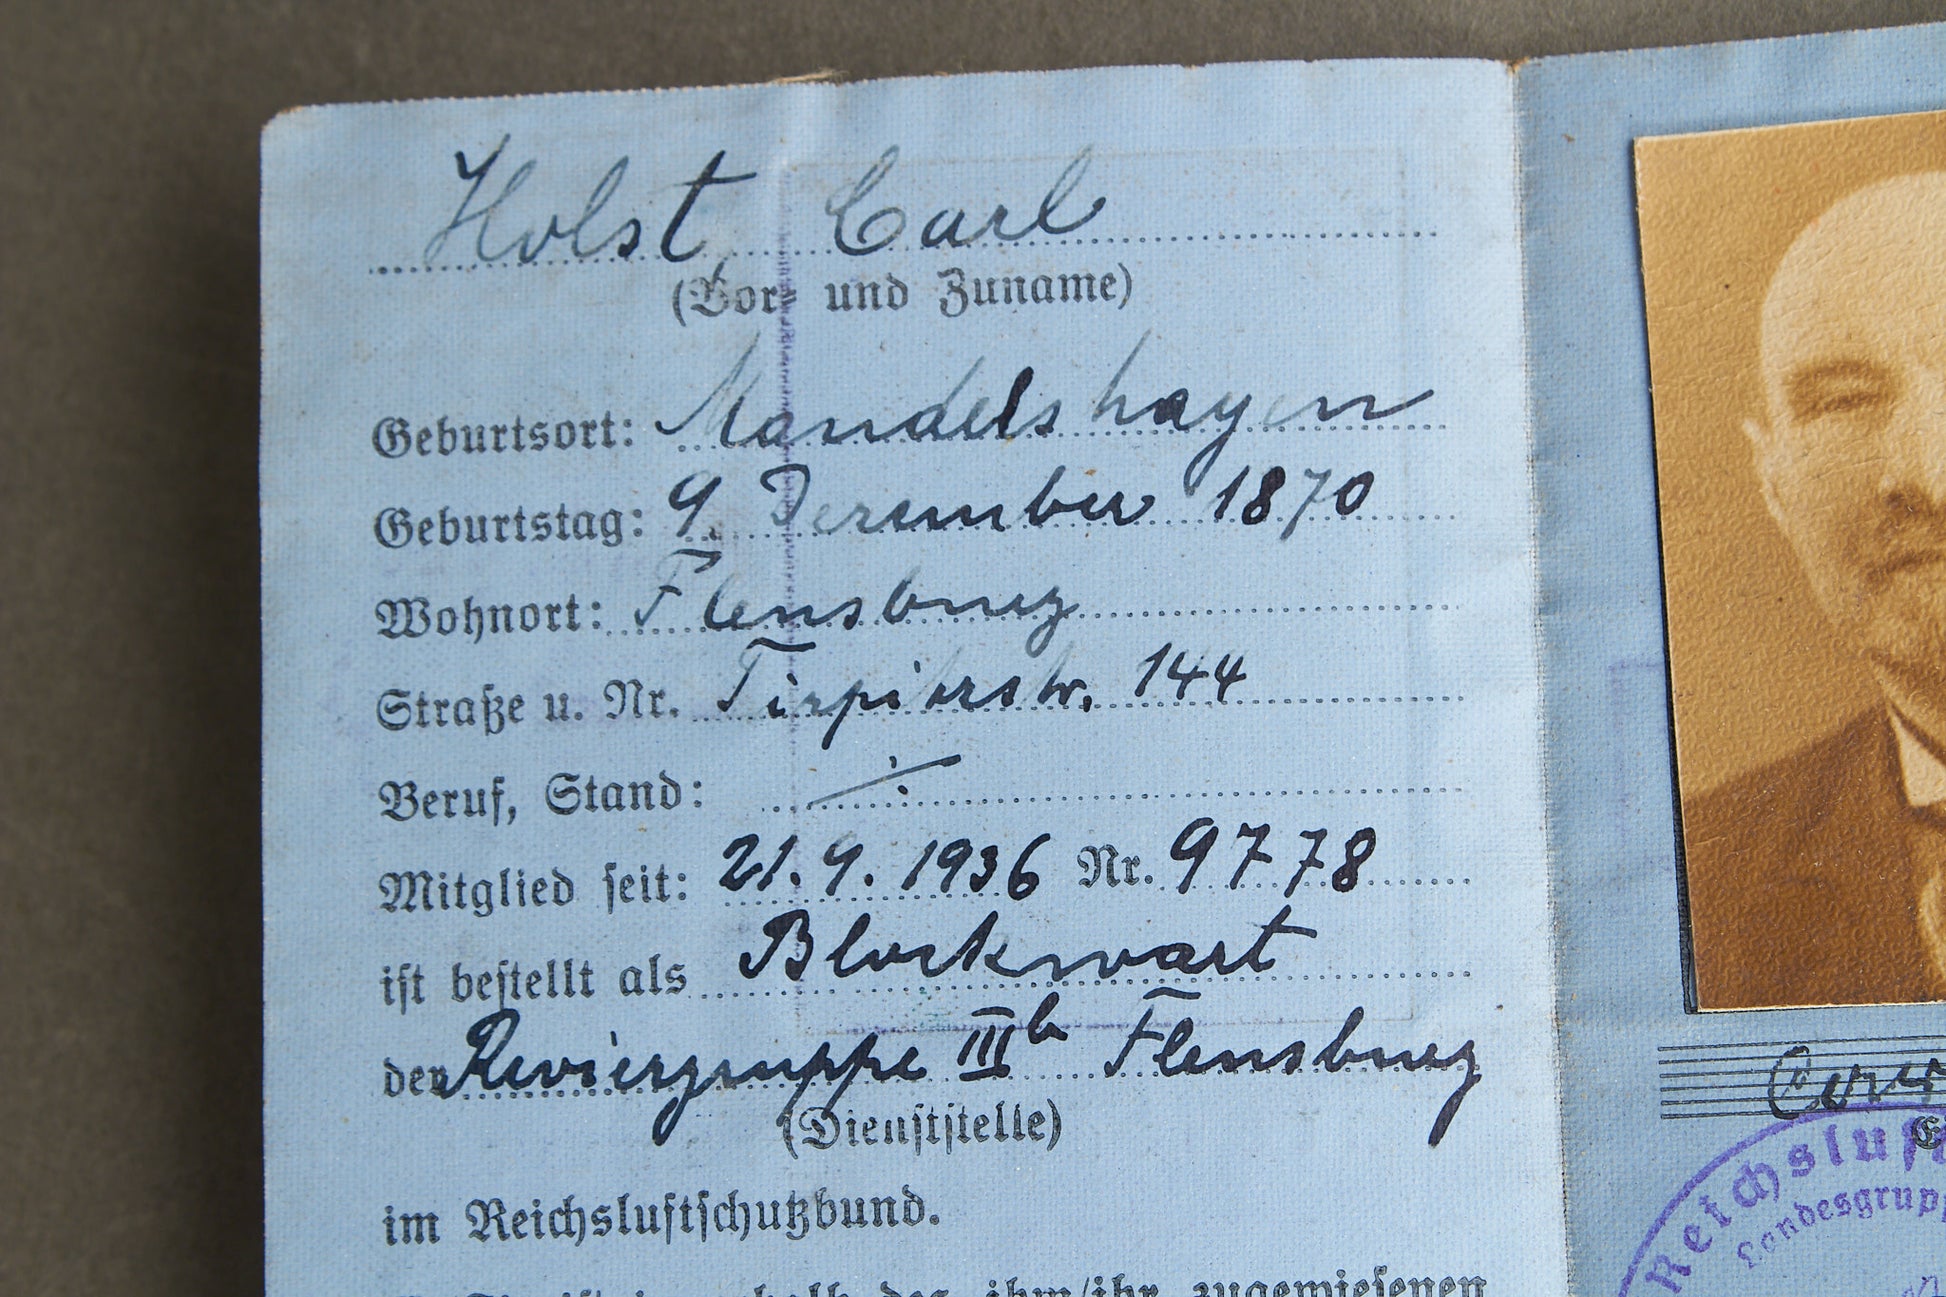 Holst Carl
(Vor- und Zuname)
Geburtsort: Mandelshagen
Geburtstag: 9. Dezember 1870
Wohnort: Flensburg
Straße u. Nr. Tirpitzstr. 144
Beruf, Stand: ./.
Mitglied seit: 21. 9. 1936 Nr. 9778
ist bestellt als Blockwart
der Reviergruppe III b Flensburg
(Dienststelle)
im Reichsluftschutzbund.
ihm/ihr zugewiesenen
Carl
Reichsluft
Landesgrupp